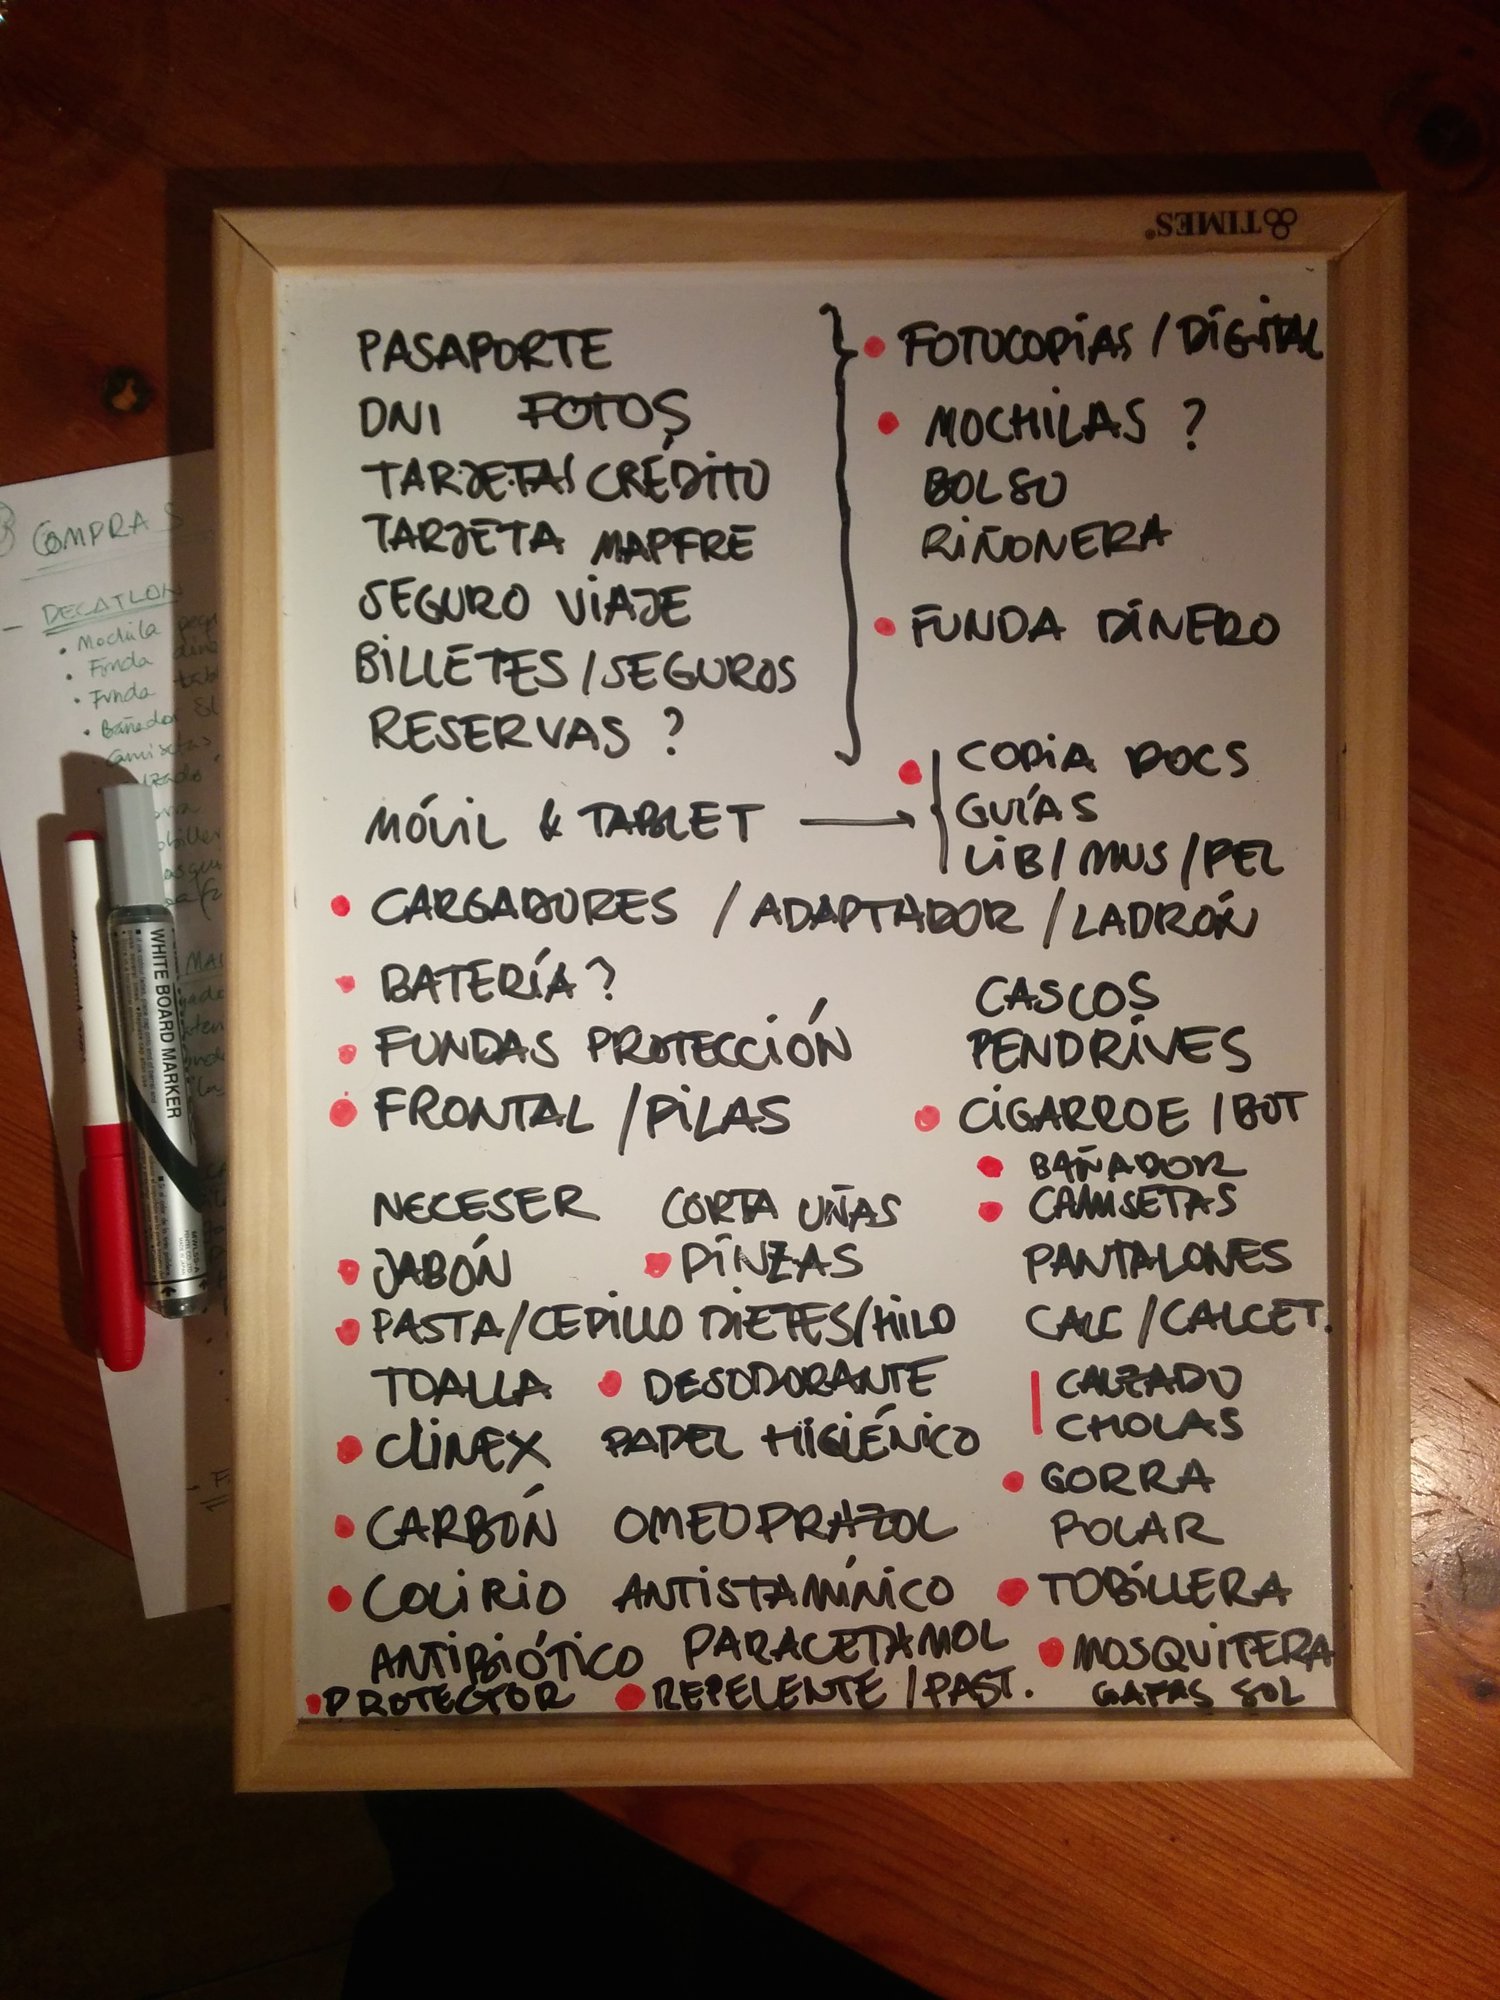 TIMES®
PASAPORTE
DNI FOTOS
TARJETAS CRÉDITO
TARJETA MAPFRE
SEGURO VIAJE
BILLETES/SEGUROS
RESERVAS ?
FOTOCOPIAS / DIGITAL
MOCHILAS ?
BOLSO
RIÑONERA
FUNDA DINERO
MÓVIL & TABLET
COPIA DOCS
GUÍAS
LIB/MUS/PEL
CARGADORES / ADAPTADOR / LADRÓN
BATERÍA?
FUNDAS PROTECCIÓN
FRONTAL /PILAS
CASCOS
PENDRIVES
CIGARROE / BOT
NECESER CORTA UÑAS
JABÓN PINZAS
PASTA/CEPILLO DIETES/HILO
TOALLA DESODORANTE
CLINEX PAPEL HIGIÉNICO
CARBÓN OMEOPRAZOL
COLIRIO ANTISTAMÍNICO
ANTIBIÓTICO PARACETAMOL
PROTECTOR REPELENTE /PAST.
BAÑADOR
CAMISETAS
PANTALONES
CALC /CALCET.
CALZADO
CHOLAS
GORRA
POLAR
TOBILLERA
MOSQUITERA
GAFAS SOL
COMPRAS
DECATLON
Mochila
Funda
Funda
Bañador
Camisetas
WHITE BOARD MARKER